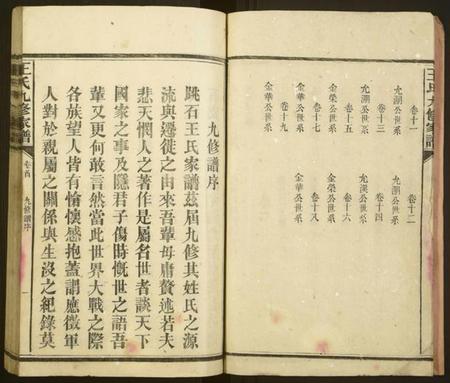 王氏九修家譜
卷十一
卷十二
允湖公世系
允湖公世系
卷十三
卷十四
允湖公世系
允渶公世系
卷十五
卷十六
金榮公世系
金榮公世系
卷十七
卷十八
金華公世系
金華公世系
卷十九
金華公世系
王氏九修家譜
卷首
九修譜序
一
九修譜序
跳石王氏家譜茲屆九修其姓氏之源
流與遷徙之由來吾輩毋庸贅述若夫
悲天憫人之著作是屬名世者談天下
國家之事及隱君子傷時慨世之語吾
輩又更何敢言然當此世界大戰之際
各族望人皆有愉懊感抱蓋謂應徵軍
人對於親屬之關係與生沒之紀錄莫